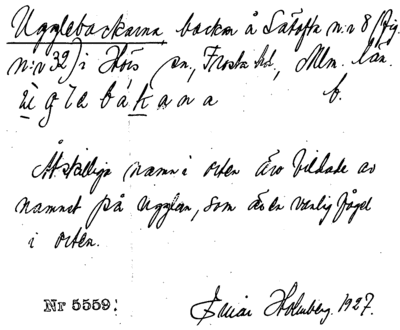 Ugglebackarna backar å Sätofta n:r 8 (Fig.
n:r 32) i Hörs sn, Frosta hd, Mlm. län.
ùglabákana f.
Åtskilliga namn i orten äro bildade av
namnet på Ugglan, som är en vanlig fågel
i orten.
Nr 5559. Einar Holmberg. 1927.